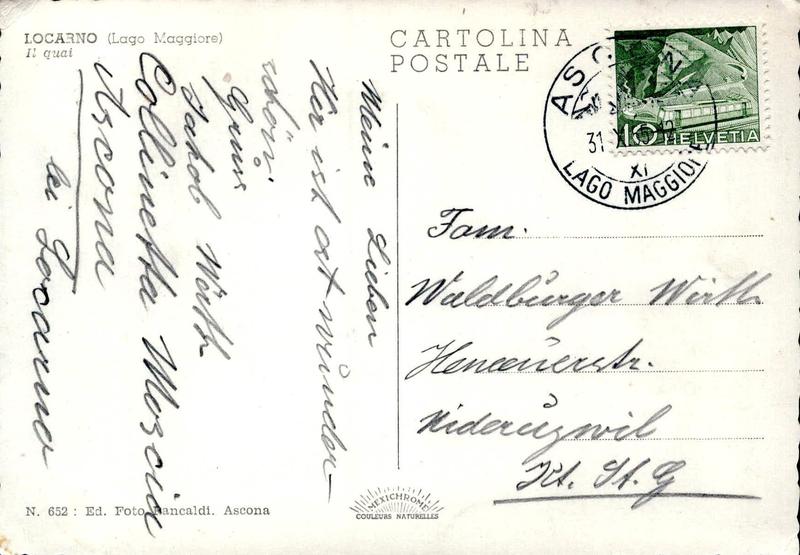 LOCARNO (Lago Maggiore)
Il quai
CARTOLINA
POSTALE
ASCONA
31
XI
LAGO MAGGIORE
10 HELVETIA
Meine Lieben
Hier ist est wunder-
schön
Gruss
Jakob Wirth
Collinetta Moscia
Ascona
bei Locarno
Fam.
Waldburger Wirth
Henauerstr.
Niderüzwil
Kt. St. G
N. 652 : Ed. Foto Bancaldi. Ascona
MEXICHROME
COULEURS NATURELLES